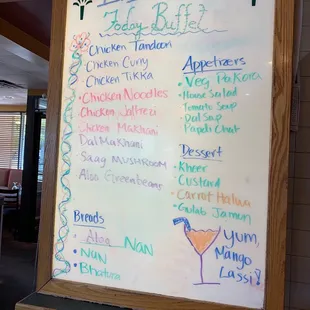 Today Buffet
Chicken Tandoori
Chicken Curry
Chicken Tikka
Chicken Noodles
Chicken Jalfrezi
Chicken Makhani
Dal Makhani
Saag Mushroom
Aloo Greenbeans
Breads
Aloo Nan
Nan
Bhatura
Appetizers
Veg Pakora
House Salad
Tomato Soup
Dal Soup
Papdi Chat
Dessert
Kheer
Custard
Carrot Halwa
Gulab Jamun
Yum,
Mango
Lassi!